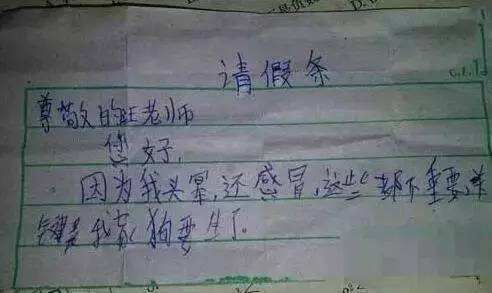 请假条
尊敬的旺老师
您好,
因为我头晕,还感冒,这些都不重要,关
键是我家狗要生了。